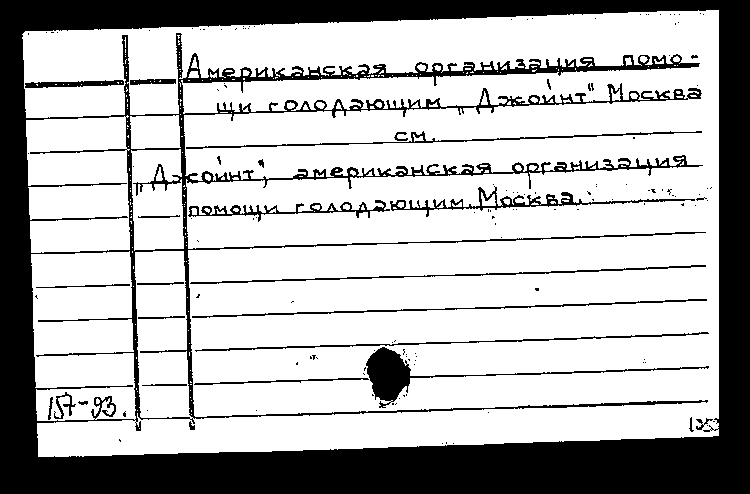 Американская организация помо-
щи голодающим „Джойнт". Москва
см.
„Джойнт", американская организация
помощи голодающим. Москва.
157-93.